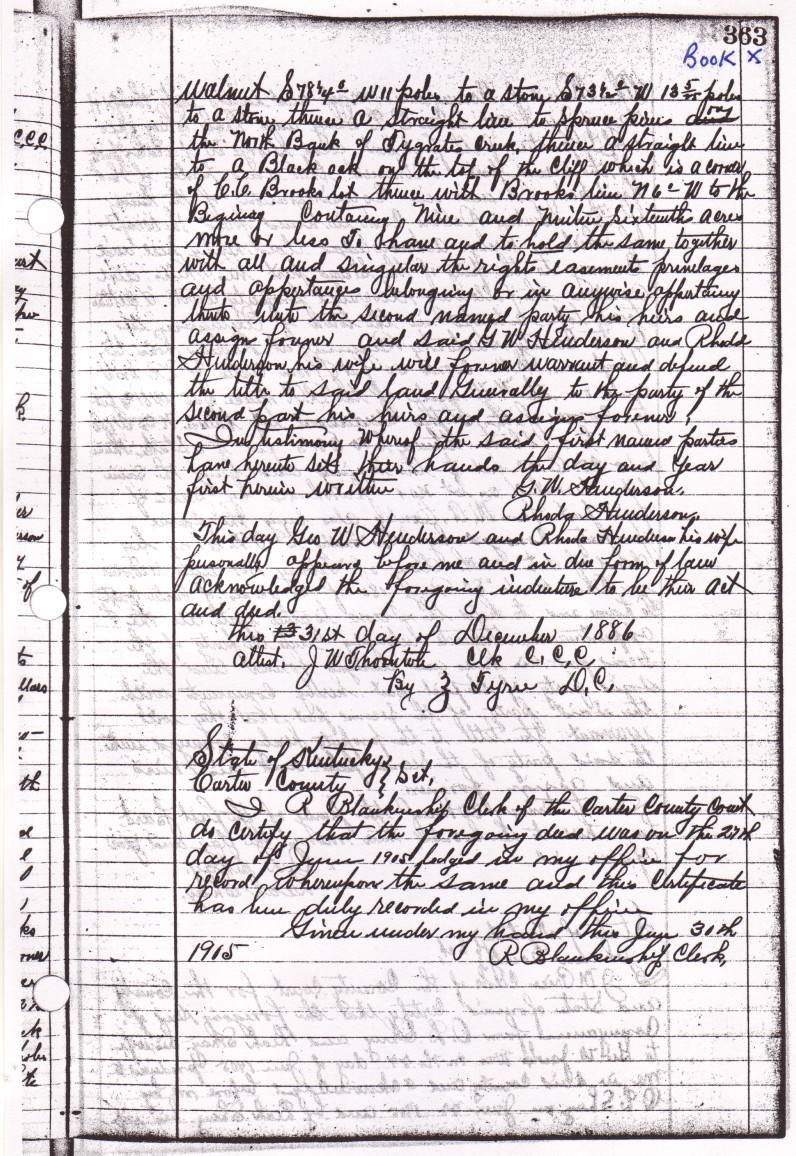 363
Book X
walnut S 78 1/4° W 11 poles to a stone S 73 1/2° W 13 5/ poles
to a stone thence a straight line to spruce pines on
the North Bank of Tygrates Creek, thence a straight line
to a Black oak on the top of the Cliff which is a corner
of C.C. Brooks lot thence with Brooks line N 6° W to the
Begining Contaning Nine and Sixteenths acres
more or less To have and to hold the same together
with all and singular the rights easements privelages
and belonging or in anywise
unto the second named party his heirs and
assigns forever and said G W Henderson and Rhoda
Henderson his wife will forever warrant and defend
the title to said land Generally to the party of the
second part his heirs and assigns forever,
In testimony Whereof the said first named parties
have hereto sets their hands the day and year
first herein written G. W. Henderson,
Rhoda Henderson,
This day Geo W Henderson and Rhoda Henderson his wife
personally appeared before me and in due form of law
acknowledged the foregoing indenture to be their act
and deed.
this 31st day of December 1886
attest, J W Clk C, C, C
By D, C,
State of Kentucky
Carter County } Sct,
I R Blankenship Clerk of the Carter County Court
do certify that the foregoing deed was on the 27th
day of June 1905 lodged in my office for
record Whereupon the same and this Certificate
has been duly recorded in my office
Given under my hand this June 30th
1905 R Blankenship Clerk,